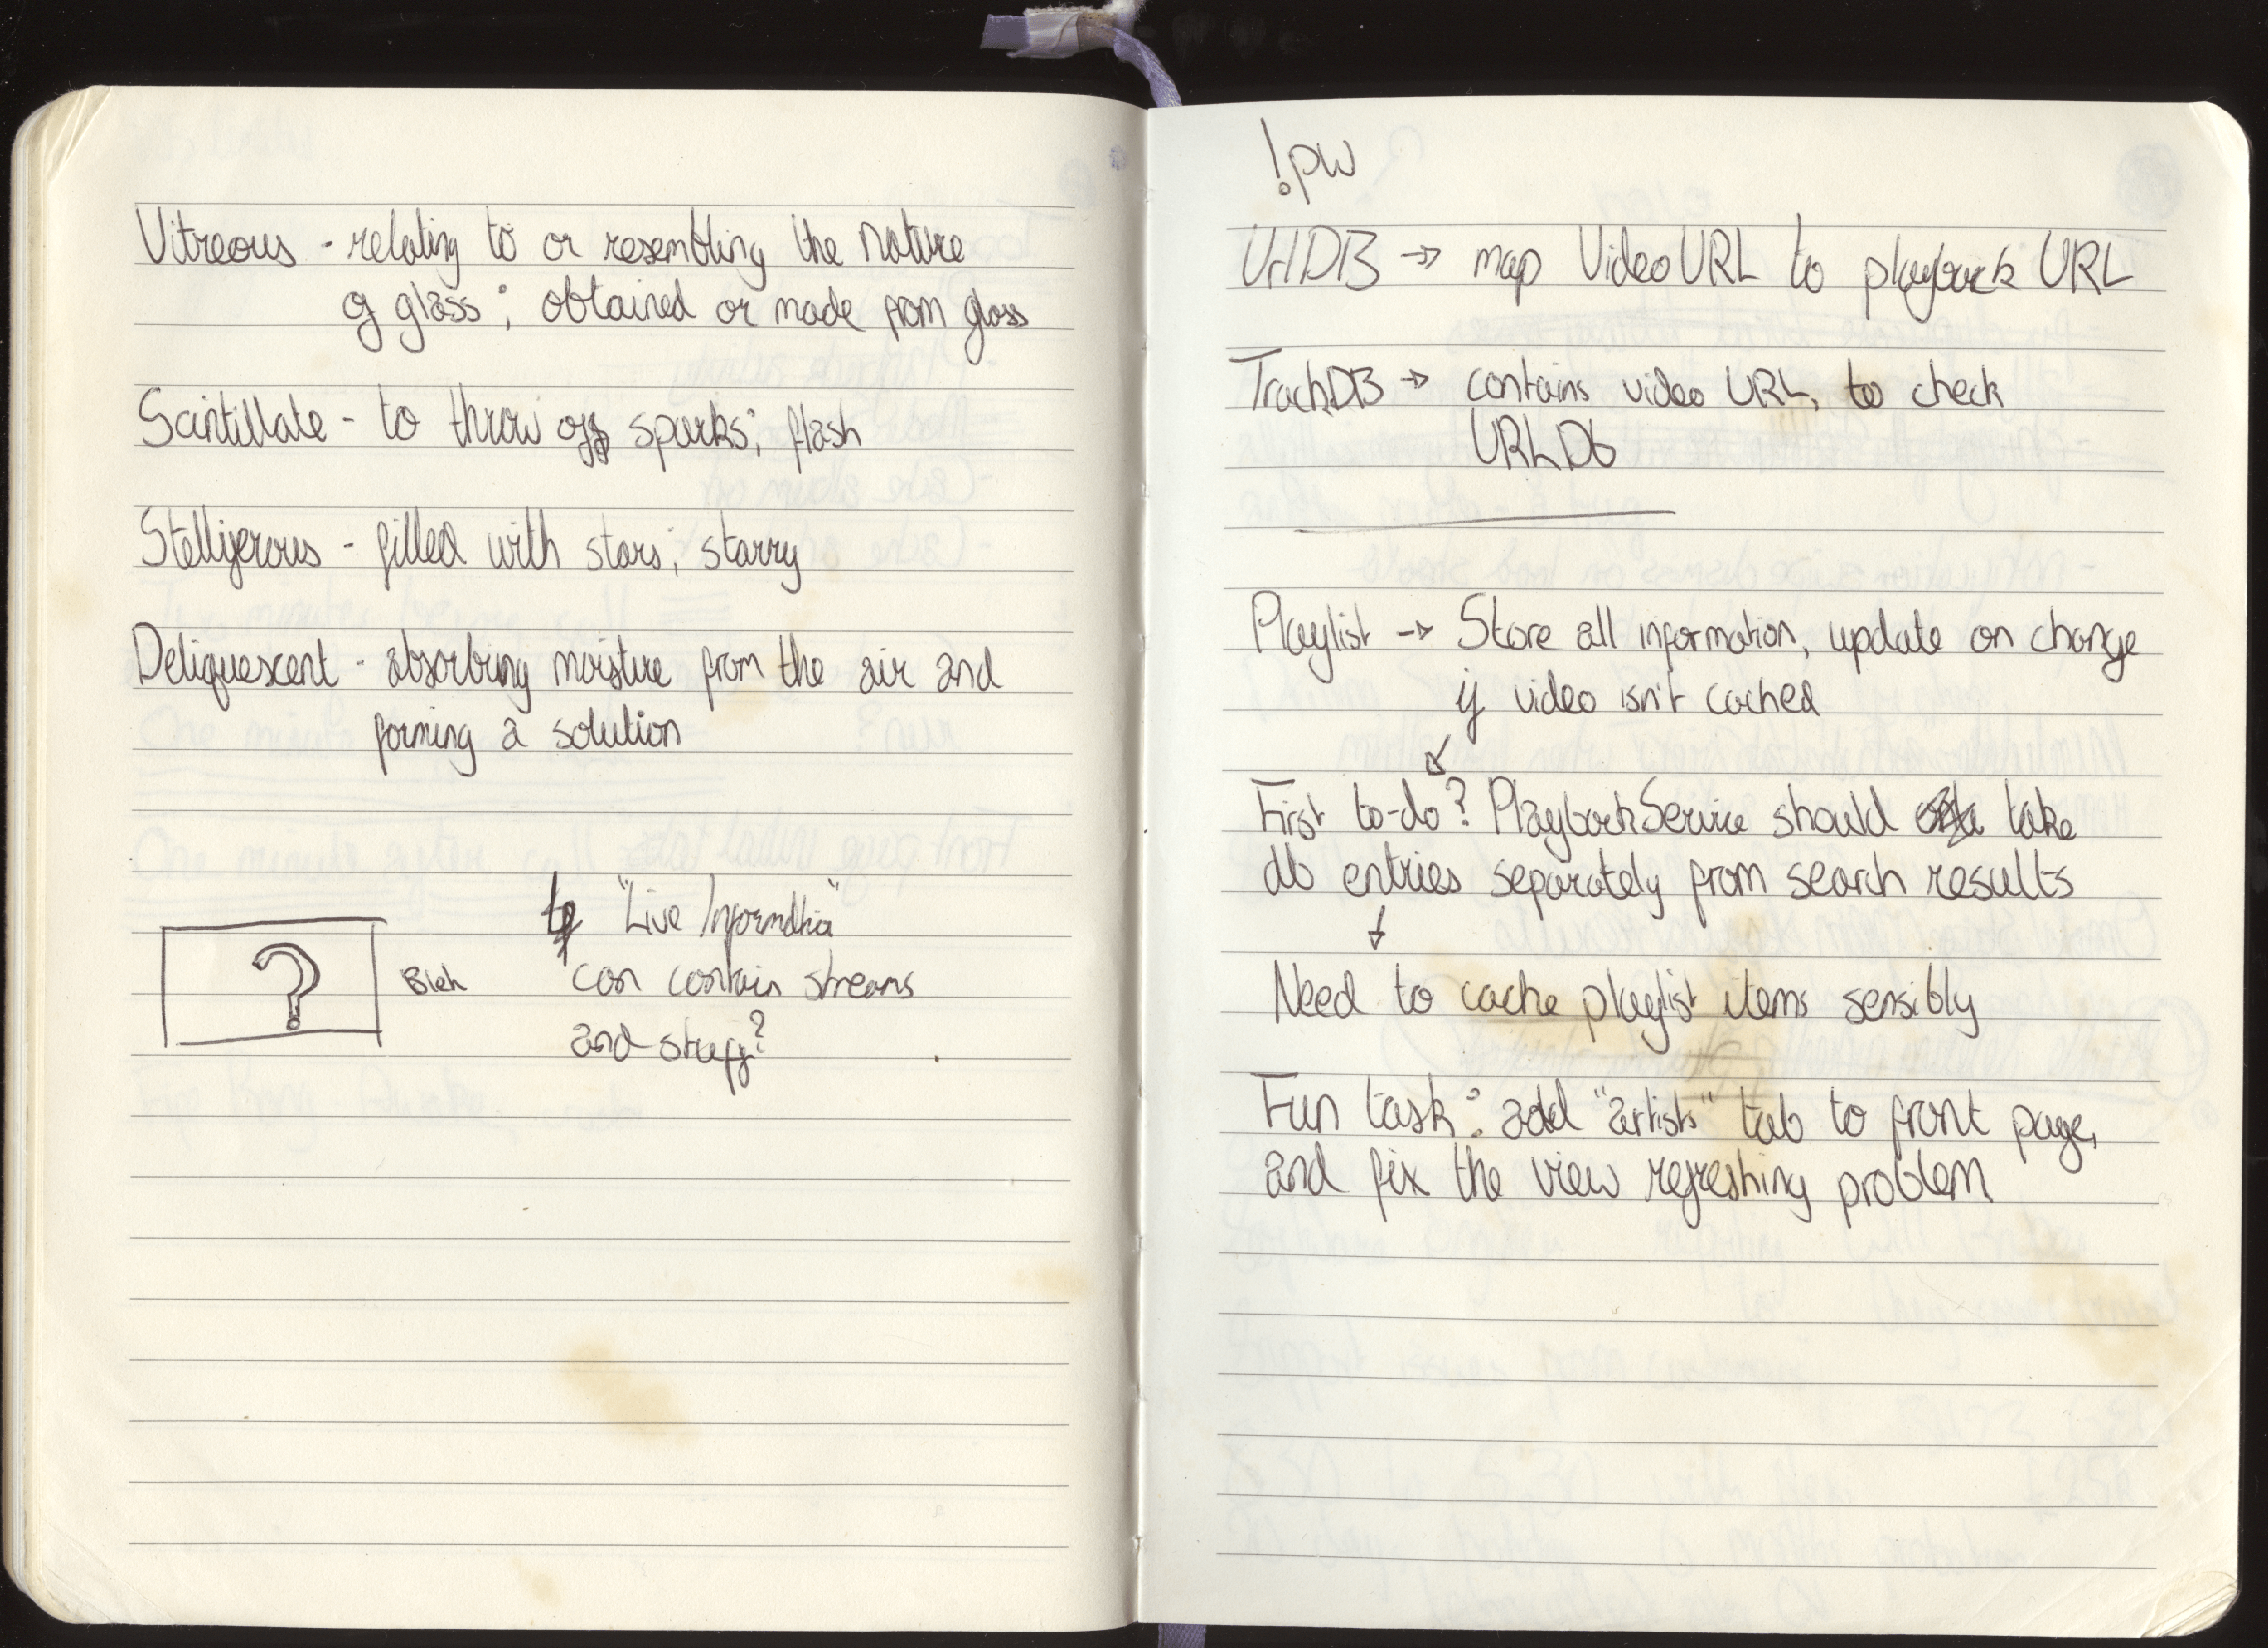 Vitreous - relating to or resembling the nature
of glass; obtained or made from glass
Scintillate - to throw off sparks; flash
Stelliferous - filled with stars; starry
Deliquescent - absorbing moisture from the air and
forming a solution
"Live Information"
Bleh can contain streams
and stuff?
?
!pw
UrlDB → map VideoURL to playback URL
TrackDB → contains video URL, to check
URLDb
Playlist → Store all information, update on change
if video isn't cached
↙
First to-do? PlaybackService should take
db entries separately from search results
↓
Need to cache playlist items sensibly
Fun task: add "artists" tab to front page,
and fix the view refreshing problem